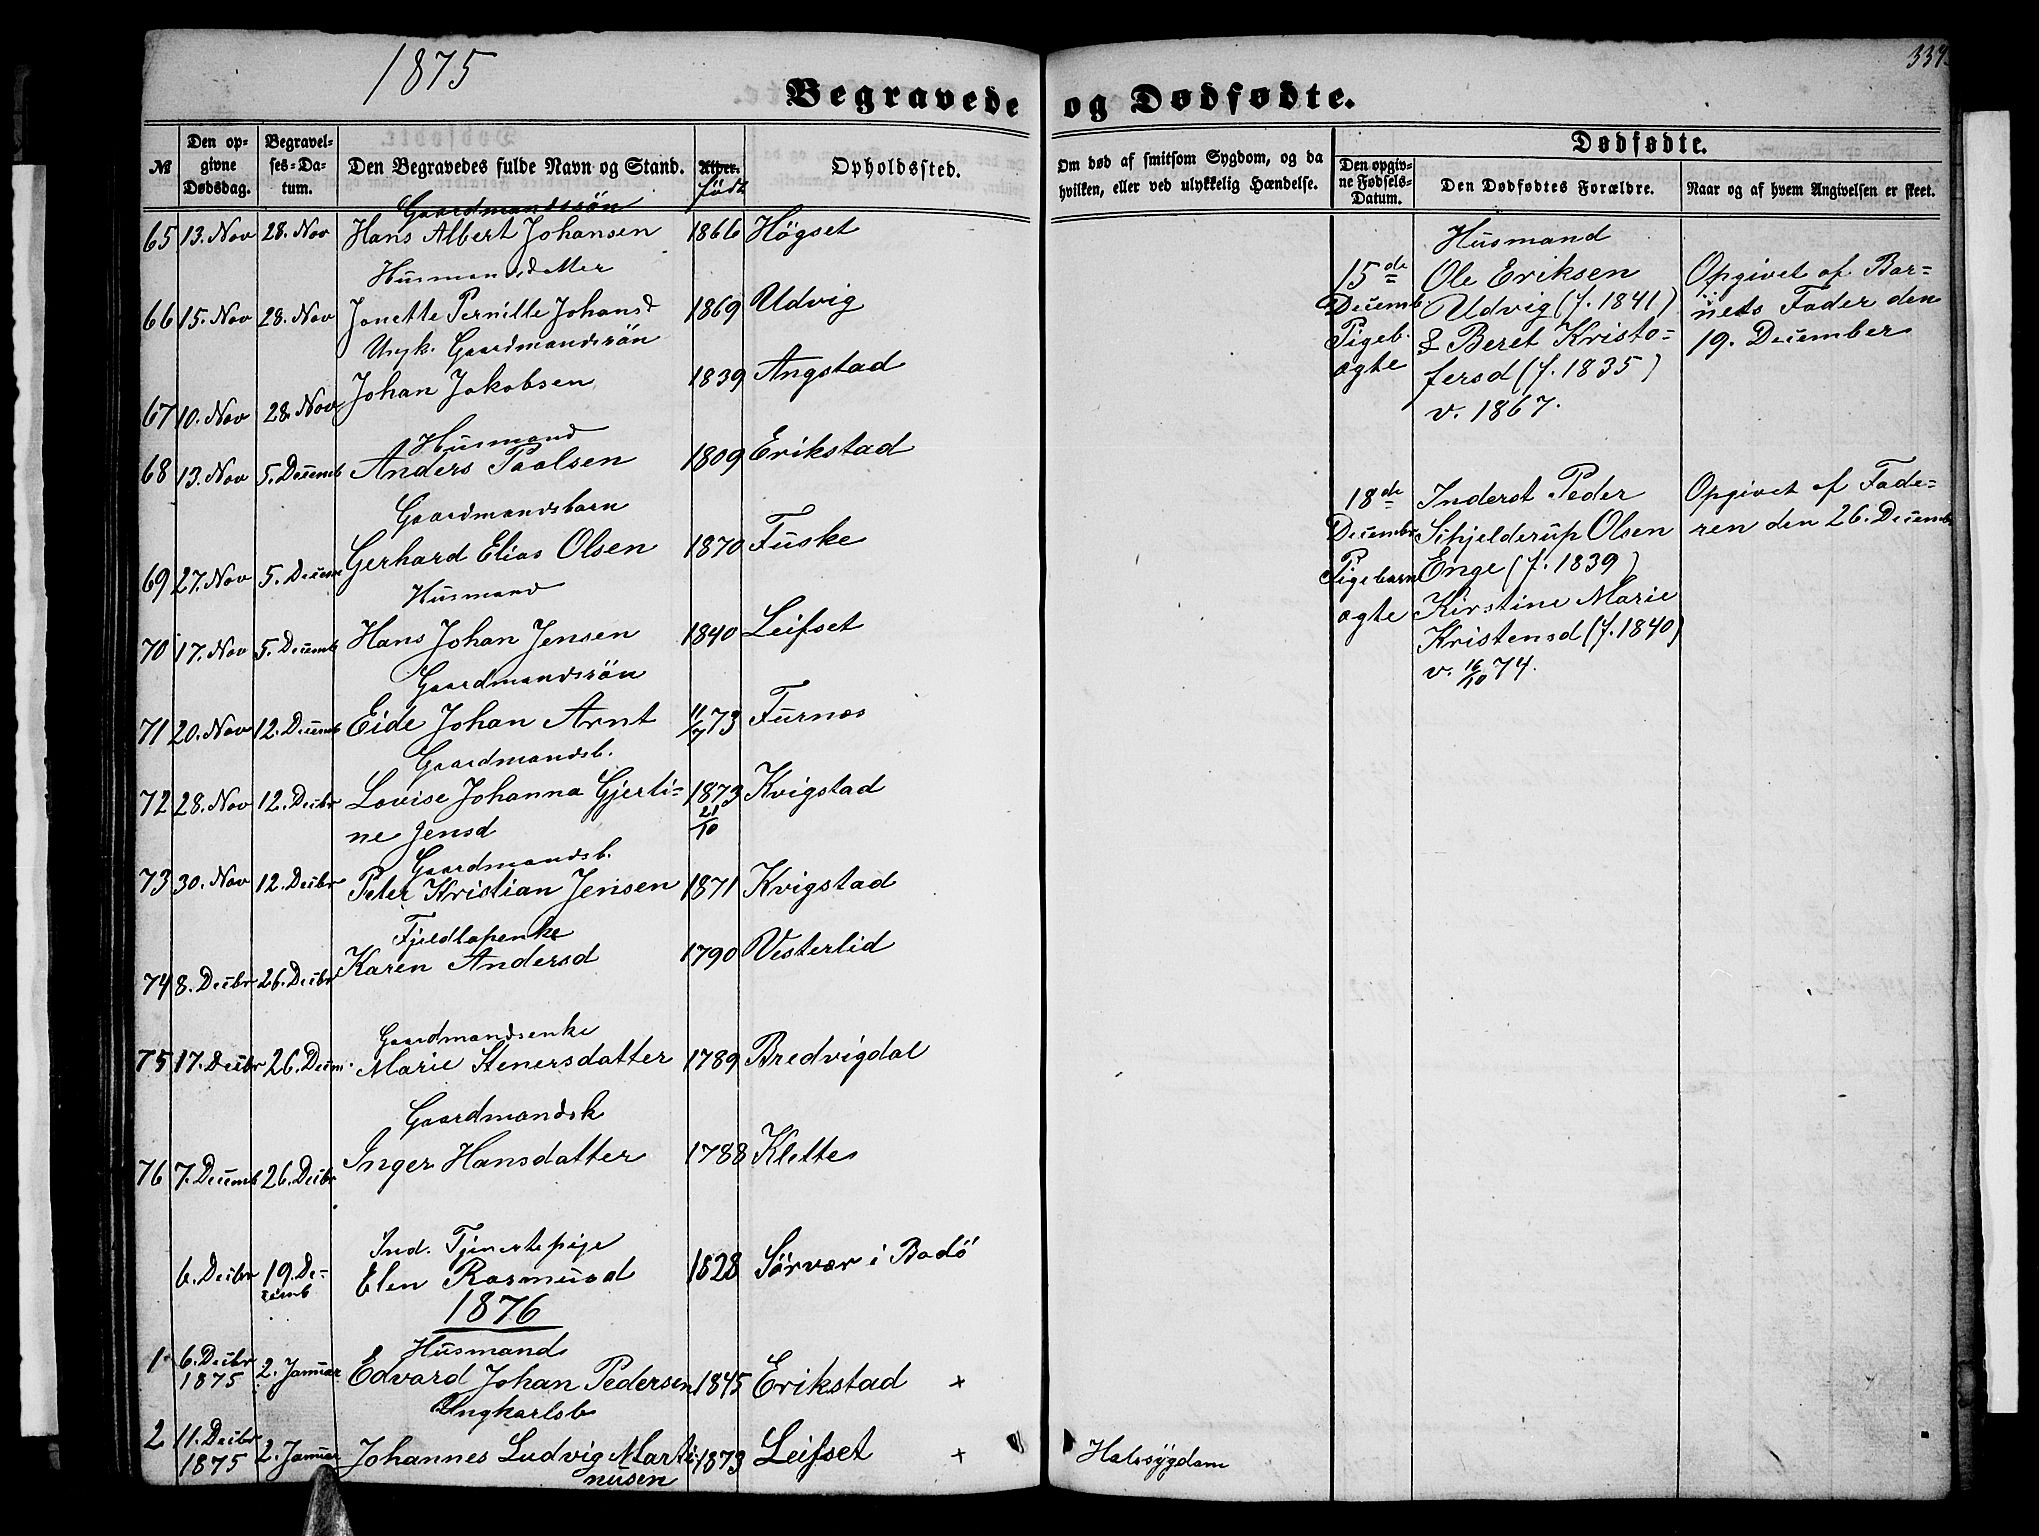 1875
334
Begravede og Dødfødte.
№
Den opgivne Dødsdag.
Begravelses-Datum.
Den Begravedes fulde Navn og Stand.
Alder.
født
Opholdssted.
Om død af smitsom Sygdom, og da hvilken, eller ved ulykkelig Hændelse.
Dødfødte.
Den opgivne Fødsels-Datum.
Den Dødfødtes Forældre.
Naar og af hvem Angivelsen er skeet.
Gaardmandssön
65 13. Nov 28. Nov Hans Albert Johansen 1866 Högset
Husmandsdatter
66 15. Nov 28. Nov Jonette Pernille Johansd 1869 Udvig
Ungk. Gaardmandssön
67 10. Nov 28. Nov Johan Jakobsen 1839 Angstad
Husmand
68 13. Nov 5. Decemb Anders Paalsen 1809 Erikstad
Gaardmandsbarn
69 27. Nov 5. Decem Gerhard Elias Olsen 1870 Fuske
Husmand
70 17. Nov 5. Decemb Hans Johan Jensen 1840 Leifset
Gaardmandssön
71 20. Nov 12. Decemb Eide Johan Arnt 11/7 73 Furnes
Gaardmandsb.
72 28. Nov 12. Decbr Lovise Johanna Gjerti- 1873 Kvigstad
ne Jensd 21/10
Gaardmandsb.
73 30. Nov 12. Decbr Peter Kristian Jensen 1871 Kvigstad
Fjeldlapenke
74 8. Decbr 26. Decbr Karen Andersd 1790 Vesterlid
Gaardmandsenke
75 17. Decbr 26. Decm. Marie Stenersdatter 1789 Bredvigdal
Gaardmandsk
76 7. Decemb 26. Decbr Inger Hansdatter 1788 Klette
Ind. Tjenestepige
6. Decbr 19. De- Elen Rasmusd 1828 Sörvær i Bodö
cemb
1876
Husmand
1 6. Decbr 2. Januar Edvard Johan Pedersen 1845 Erikstad +
1875
Ungkarlsb
2 11. Decbr 2. Januar Johannes Ludvig Marti- 1873 Leifset + Halssygdom
1875 nusen
Husmand
15de Ole Eriksen Opgivet af Bar-
Decemb Udvig (f. 1841) nets Fader den
Pigeb. & Beret Kristo- 19. December
ægte fersd (f. 1835)
v. 1867.
18de Inderst Peder Opgivet af Fade-
Decembr Schjelderup Olsen ren den 26. Decembr
Pigebarn Enge (f. 1839)
ægte Kirstine Marie
Kristensd (f. 1840)
v. 16/10 74.